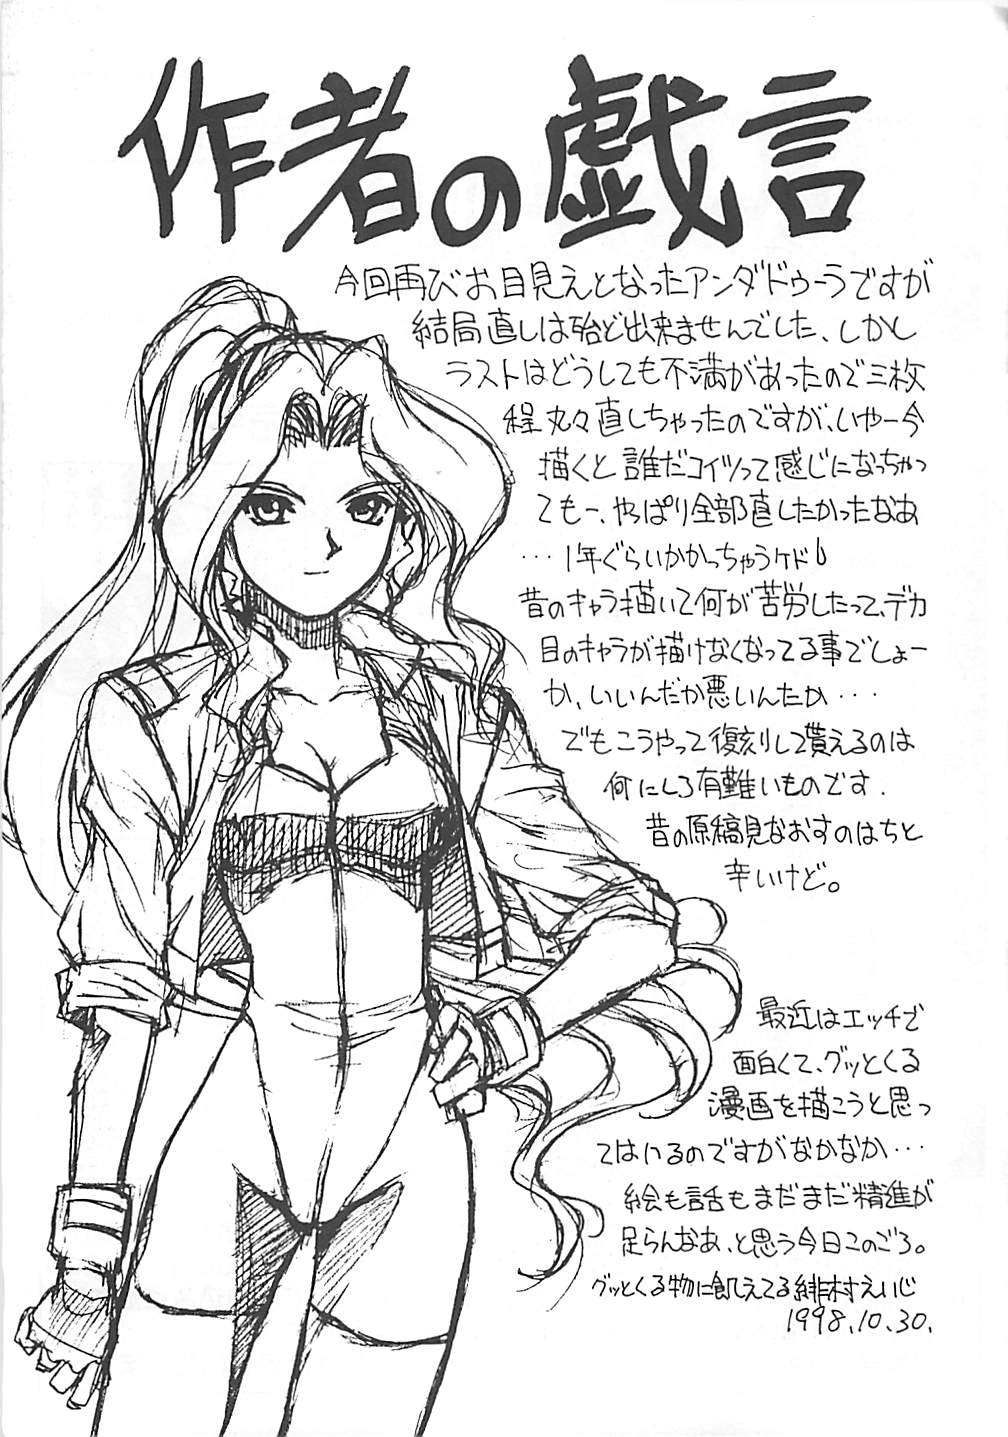 作者の戯言
今回再びお目見えとなったアンダドゥーラですが
結局直しは殆ど出来ませんでした、しかし
ラストはどうしても不満があったので三枚
程丸々直しちゃったのですが、いやー今
描くと誰だコイツって感じになっちゃっ
てもー、やっぱり全部直したかったなあ
・・・1年ぐらいかかっちゃうケド
昔のキャラ描いて何が苦労したって、デカ
目のキャラが描けなくなってる事でしょー
か、いいんだか悪いんだか・・・
でもこうやって復刻して貰えるのは
何にしろ有難いものです.
昔の原稿見なおすのはちと
辛いけど。
最近はエッチで
面白くて、グッとくる
漫画を描こうと思っ
てはいるのですがなかなか・・・
絵も話もまだまだ精進が
足らんなあ、と思う今日このごろ。
グッとくる物に飢えてる緋村えいじ
1998.10.30.